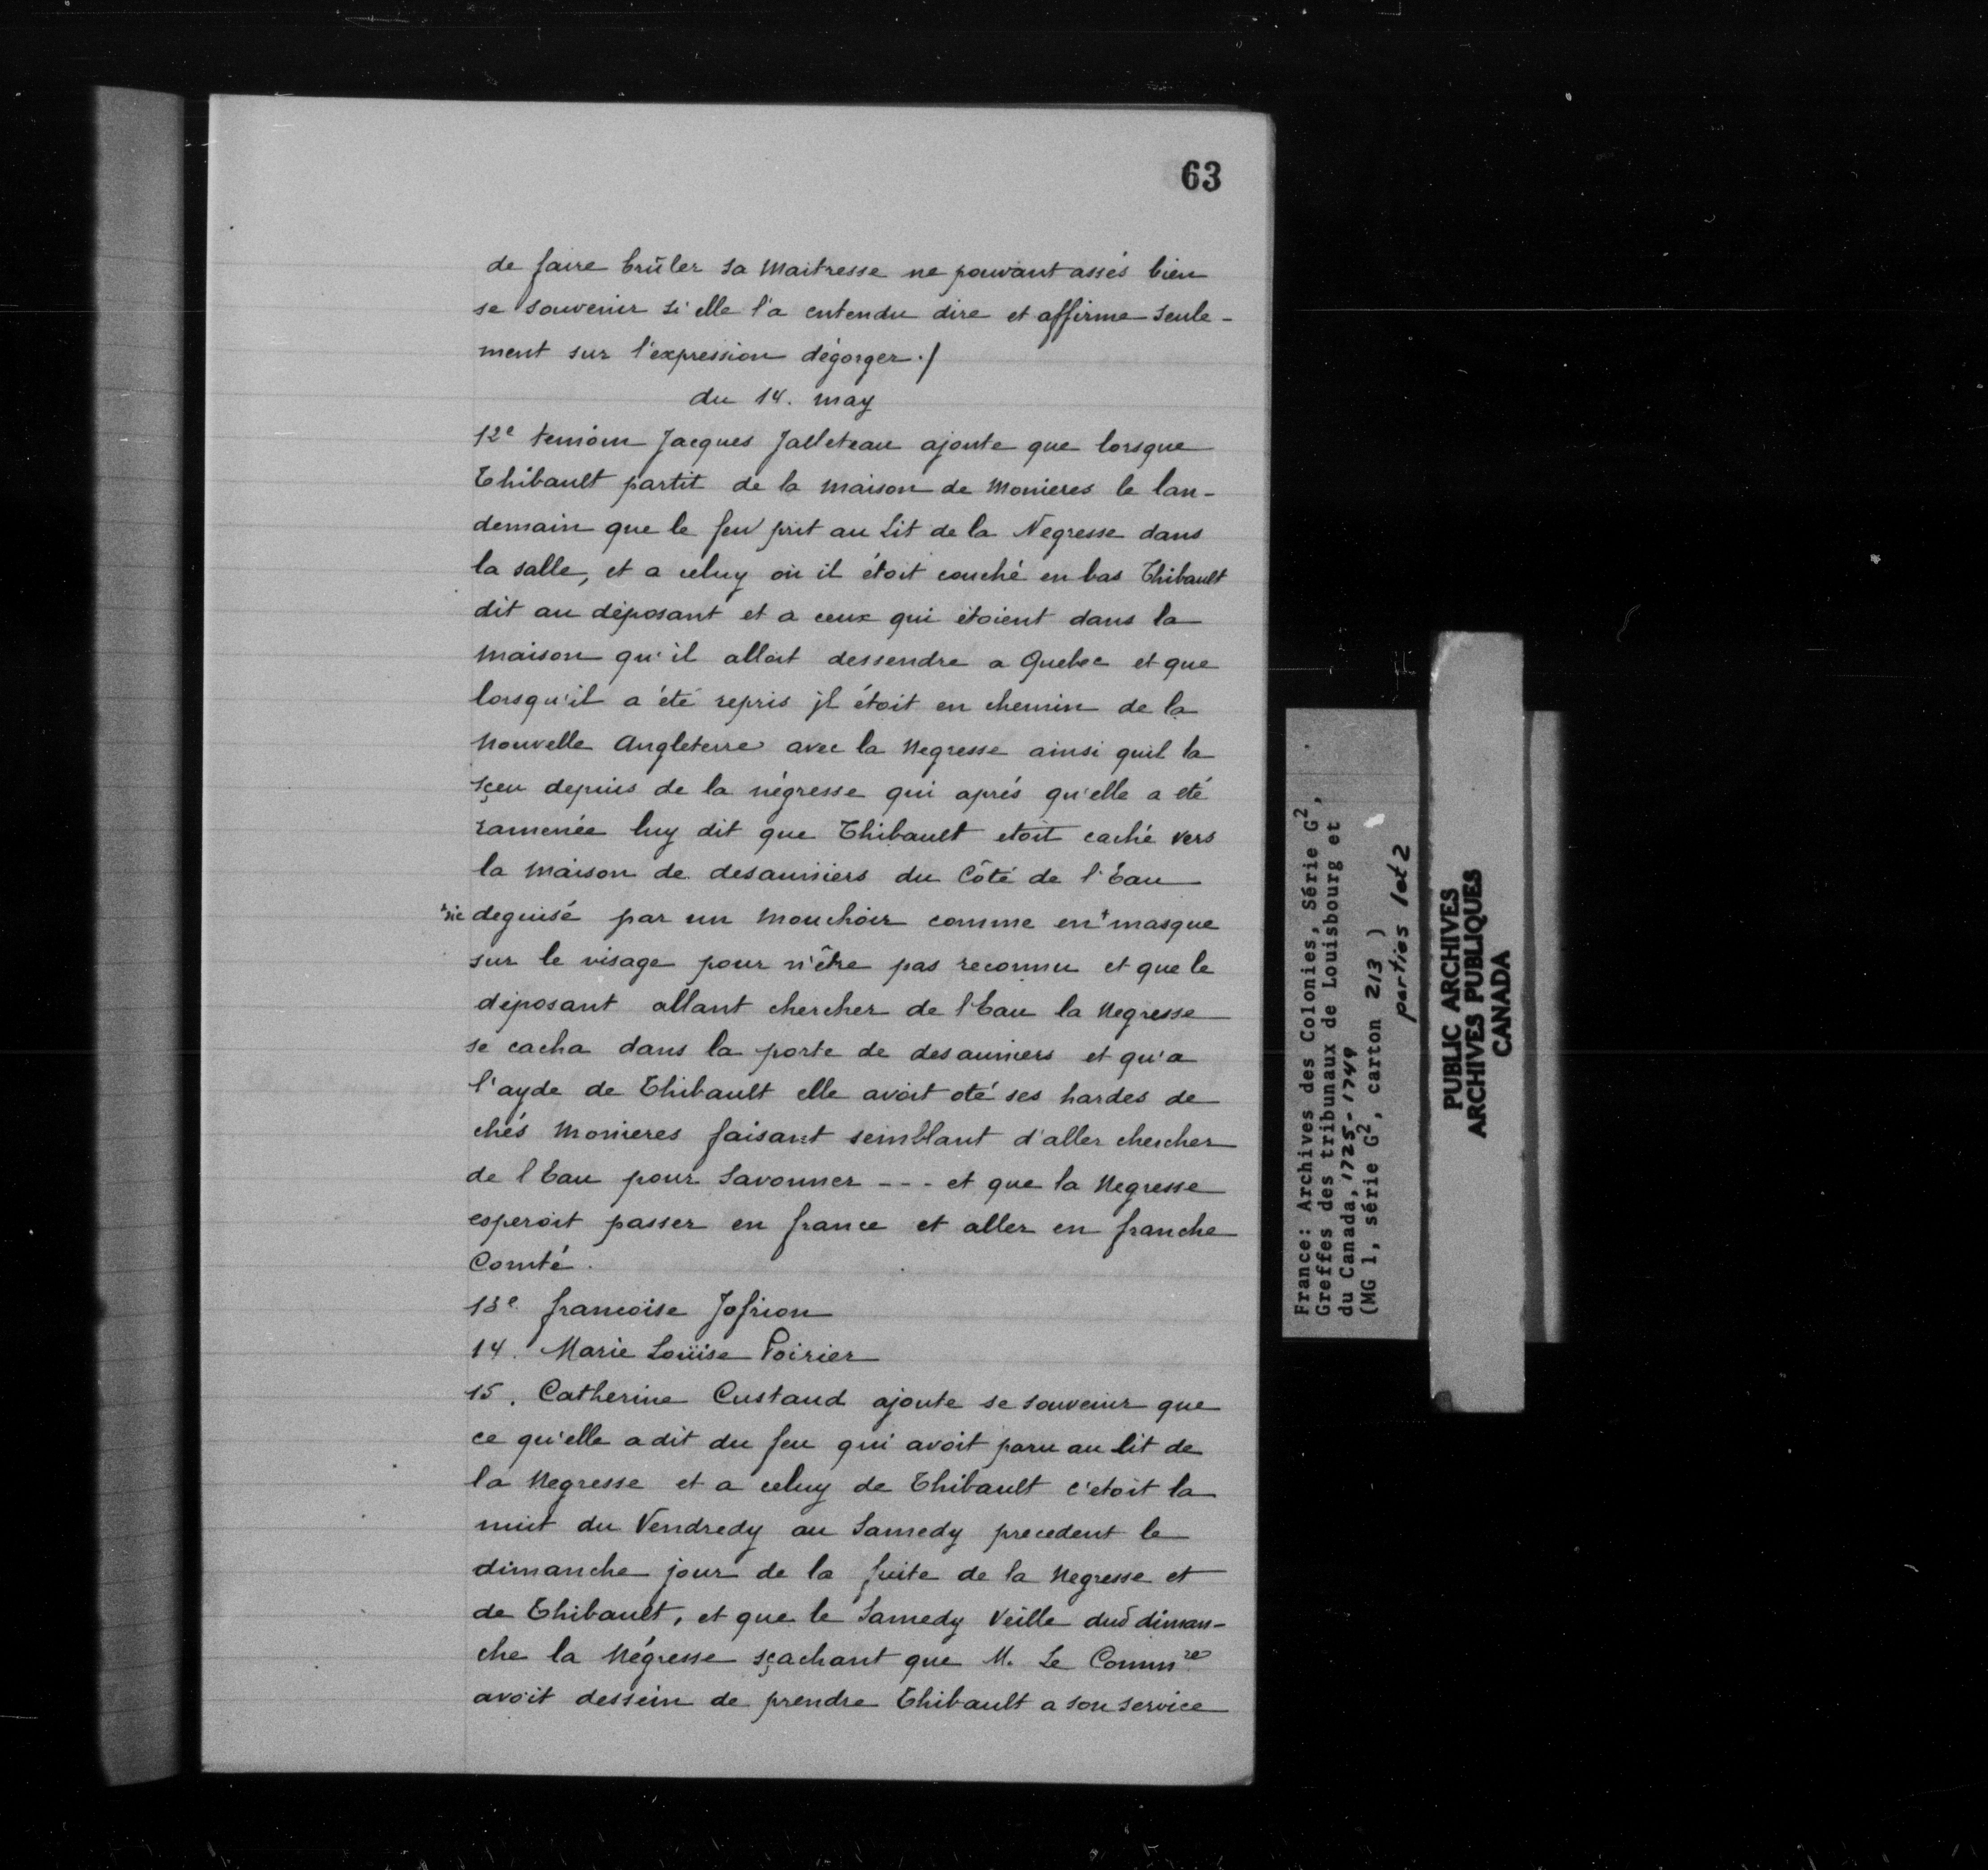 63
de faire brûler sa Maitresse ne pouvant assés bien
se souvenir si elle l'a entendu dire et affirme seule-
ment sur l'expression dégorger./
du 14. may
12e temoin Jacques Jalleteau ajoute que lorsque
Thibault partit de la maison de Monieres le lan-
demain que le feu prit au Lit de la Negresse dans
la salle, et a celuy où il étoit couché en bas Thibault
dit au déposant et a ceux qui étoient dans la
maison qu'il alloit dessendre a Quebec et que
lorsqu'il a été repris jl étoit en chemin de la
Nouvelle Angleterre avec la Negresse ainsi quil la
sçeu depuis de la négresse qui aprés qu'elle a eté
ramenée luy dit que Thibault etoit caché vers
la maison de desauniers du Côté de l'Eau
+sic deguisé par un mouchoir comme en+ masque
sur le visage pour n'être pas reconnu et que le
déposant allant chercher de l'Eau la Negresse
se cacha dans la porte de desauniers et qu'a
l'ayde de Thibault elle avoit oté ses hardes de
chés Monieres faisant semblant d'aller chercher
de l Eau pour Savonner --- et que la Negresse
esperoit passer en france et aller en franche
Comté.
13e francoise Jofrion
14. Marie Loüise Poirier
15. Catherine Custaud ajoute se souvenir que
ce qu'elle a dit du feu qui avoit paru au lit de
la Negresse et a celuy de Thibault c'etoit la
nuit du Vendredy au Samedy precedent le
dimanche jour de la fuite de la Negresse et
de Thibault, et que le Samedy Veille dud diman-
che la Négresse sçachant que M. Le Commre
avoit dessein de prendre Thibault a son service
France: Archives des Colonies, Série G2,
Greffes des tribunaux de Louisbourg et
du Canada, 1725-1749
(MG 1, série G2, carton 213)
parties 1et 2
PUBLIC ARCHIVES
ARCHIVES PUBLIQUES
CANADA